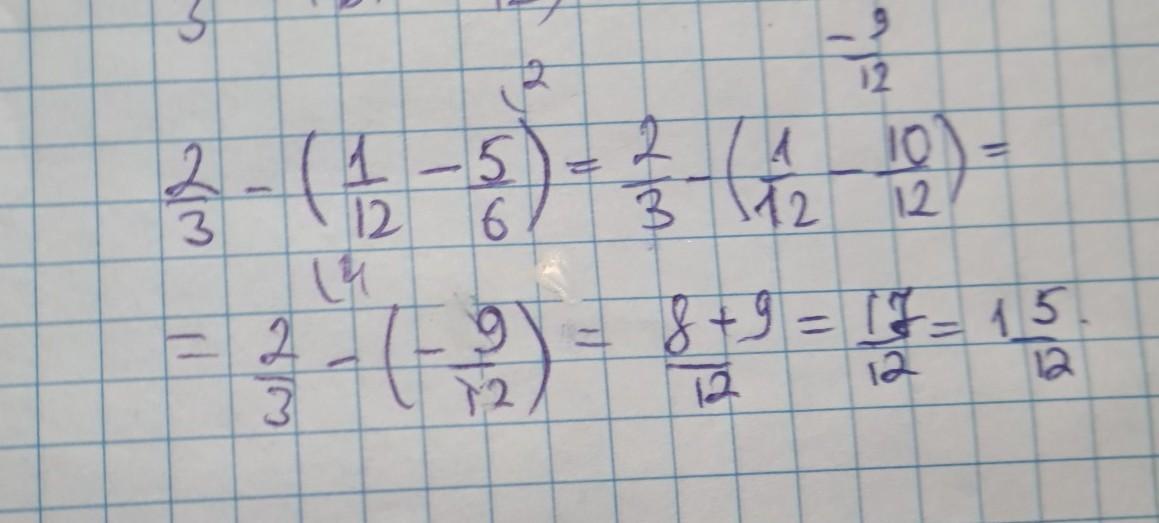 -9/12
2/3 - (1/12 - 5/6 (2) = 2/3 - (1/12 - 10/12) =
= 2/3 (4 - (-9/12) = 8+9/12 = 17/12 = 1 5/12.